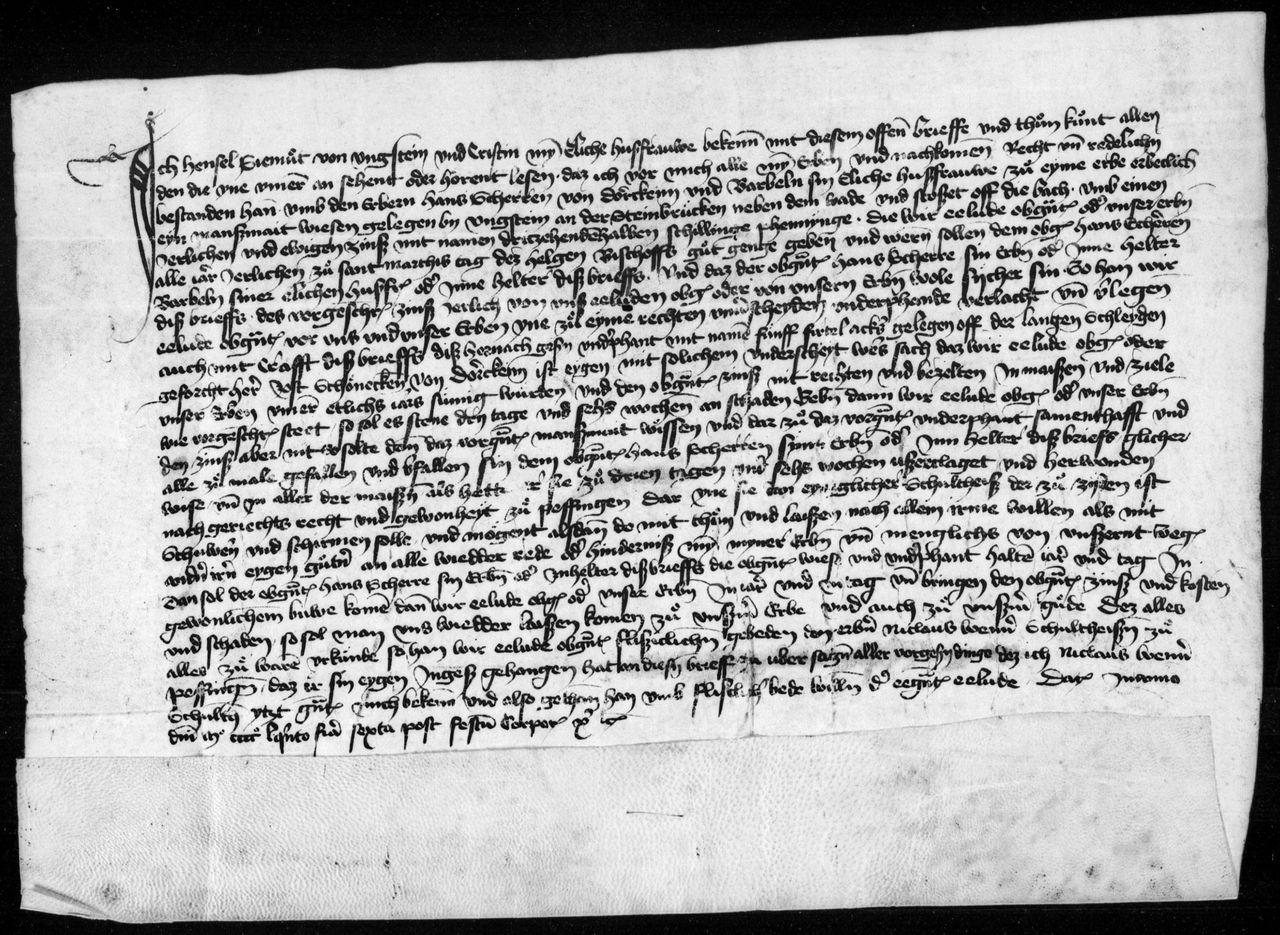 Ich Hensel Siemůt von Ungstein und Cristin myn Eliche husfrauwe bekenn mit diesem offen brieffe und thům kůnt allen
den die yne ummer an sehent oder horent lesen daz ich vor mich alle myn Erben und nachkomen Recht und redelichen
bestanden han umb den Erbern Hans Scherren von Dorckenn und Barbeln sin Eliche husfrauwe zů eyme erbe erbeclich
eyn manßmait wiesen gelegen by Ungstein an der Steinbrucken neben dem wade und stoßet off die bach umb einen
Jerlichen und ewigen zinß mit namen dritzehendehalben schillinge phennynge die wir eelude obgnt od unser erbn
alle jar Jerlichen zů sant martins tag dez helgen Bischoffs gůt genge geben und wern sollen dem obg hans Scherren
Barbeln siner elichen husff od yme helter diß brieffs und daz der obgnt hans Scherre sin Erbn od Inne helter
diß brieffs des vorgeschr zinß Jerlich von uns eeluden obg oder von unsern Erbn wole sycher sin So han wir
eelude obgnt vor uns und unser Erben yne zů eyme rechten underscheyden underphande verlacht und verlegen
auch mit Crafft diß brieffs diß hernach underphant mit name funff firtel ackers gelegen off der langen Schleyden
geforcht her Jost Schonecken von Dorckenn ist eygen mit solichem underscheyt wers sach daz wir eelude obg oder
unser Erben ummer etlichs jars sumig wurten und den obgnt zinß nit reichten und bezelten In maißen und ziele
wie vorgeschr steet so sol es stene dry tage und sehs wochen an schaden Gebn dann wir eelude obg od unser Erbn
den zinß aber nit so solte dem daz vorgnt manßmait wissen und dar zů daz vorgnt underphant samenthafft und
alle zů male gefallen und verfallen sin dem obgnt hans Scherren synen Erbn od Inn helter diß briefs glicher
wise und in aller der maißn als hette er sie zů drien tagen und sehs wochen ußerclaget und herwonden
nach gerichts recht und gewonheyt zů peffingen dar yne sie dan ein iglicher Schultheiß der zů zyten ist
Schuwern und schirmen solle und mogent alsdan do mit thun und laißen nach allem irme willen als mit
andern irn eygen gůtern an alle wiedder rede od hinderniß myn myner Erbn und menglichs von unsernt weg
Dan sol der obgnt hans Scherre sin Erbn od Inhelter diß brieffs die obgnt wiese und underphant halte jar und tag In
gewonlichem buwe kome dan wir eelude obg od unser Erbn In jar und In tag und bringen den obgnt zinß und kosten
und schaden so sol man uns wiedder laißen komen zů unßerm Erbe und auch zů unßerm gůde Dez alles
alles zů ware urkunde so han wir eelude obgnt flißeclichn gebeden den erbern Niclaus wenner Schultheißn zů
peffingen daz er sin eygen Ingeß gehangen hat an diesen brieff zu uber sagen aller vorgeschn dinge dez ich Niclaus wenner
Schultß ytzt gnt mich bekenn und also gethan han umb flißlich bede willn der eegnt eelude Dat In anno
dni mo cccco lquinto feria sexta post festum Corporis xpi